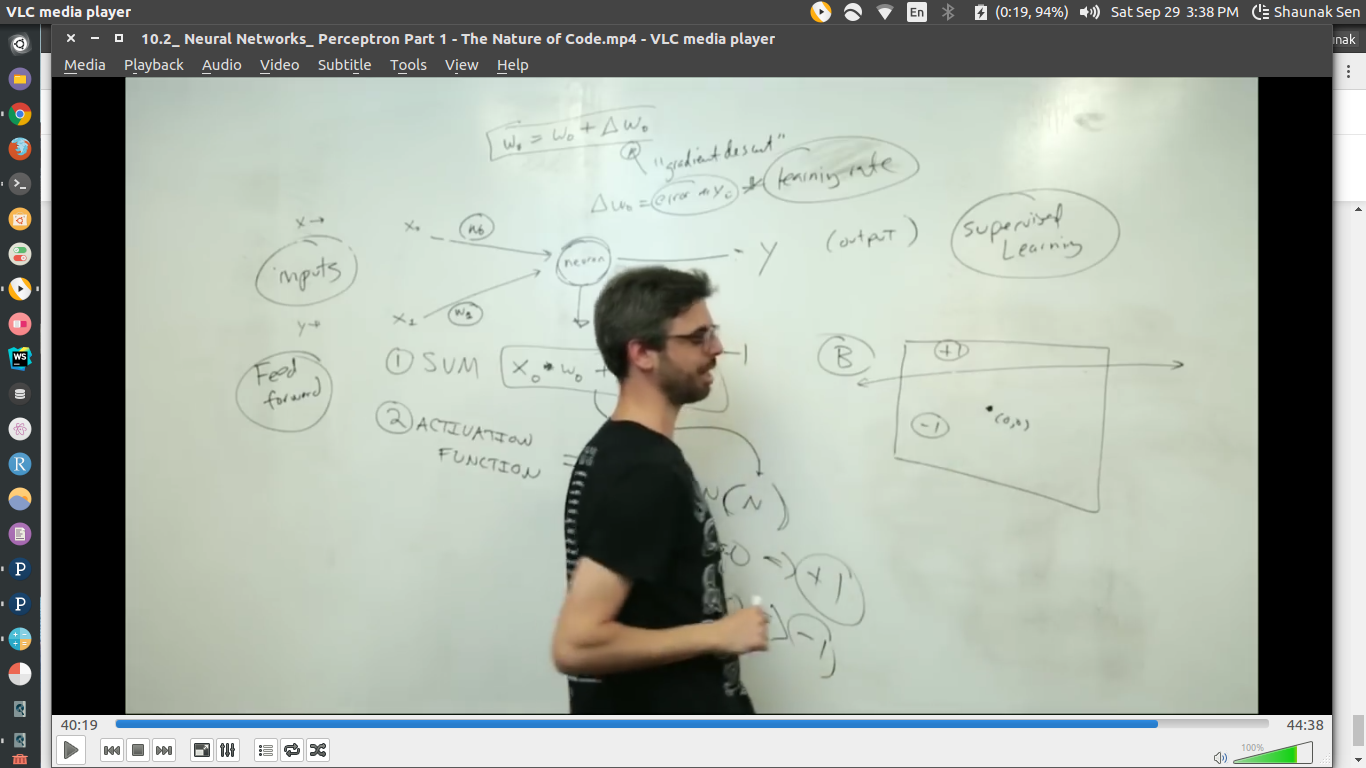 VLC media player
En
(0:19, 94%)
Sat Sep 29 3:38 PM
Shaunak Sen
10.2_ Neural Networks_ Perceptron Part 1 - The Nature of Code.mp4 - VLC media player
nak
Media Playback Audio Video Subtitle Tools View Help
W₀ = W₀ + Δ W₀
"gradient descent"
Δ W₀ = error * X₀ * learning rate
X →
inputs
y →
X₀
W₀
X₁
W₁
neuron
Y
(output)
Supervised
Learning
Feed
forward
① SUM
X₀ • W₀ +
② ACTIVATION
FUNCTION =
(N)
0 => +1
-1
B
+1
-1
(0,0)
WS
R
P
P
40:19
44:38
100%